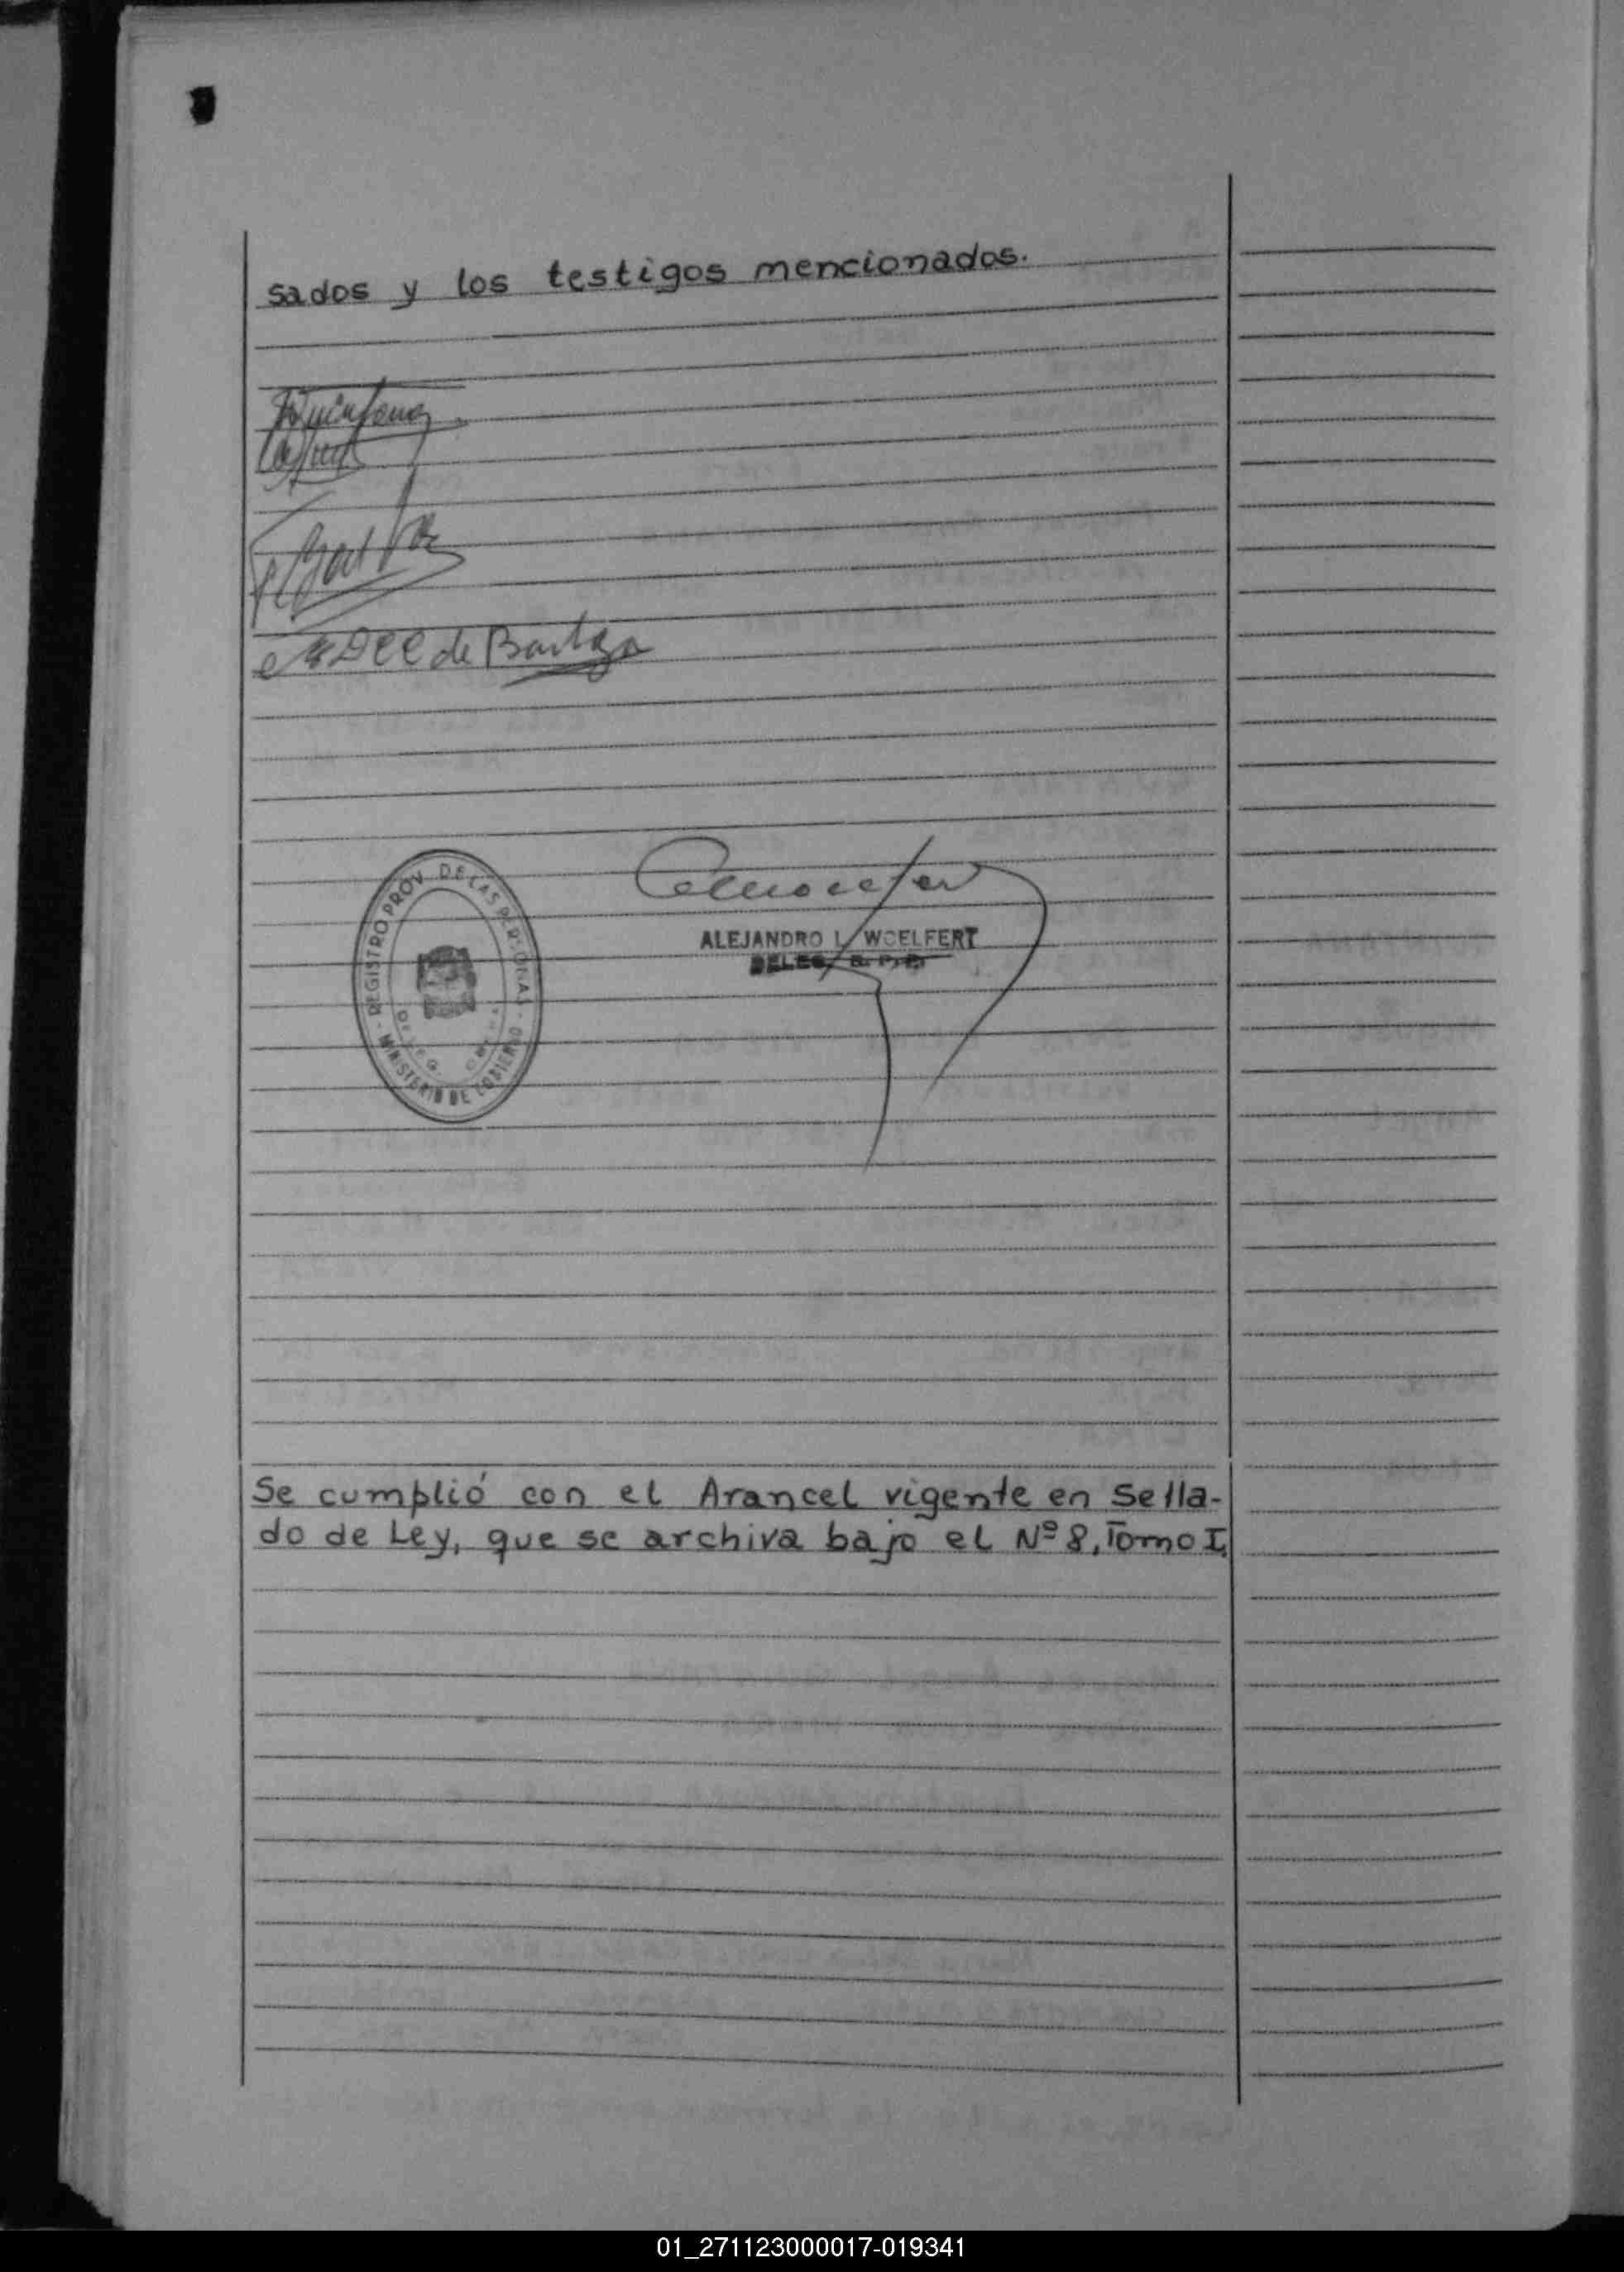 sados y los testigos mencionados.
de
REGISTRO PROV. DE LAS PERSONAS - MINISTERIO DE GOBIERNO -
ALEJANDRO L. WOELFERT
DELEG. R. P. P.
Se cumplió con el Arancel vigente en Sella-
do de Ley, que se archiva bajo el Nº 8, Tomo I.
01_271123000017-019341